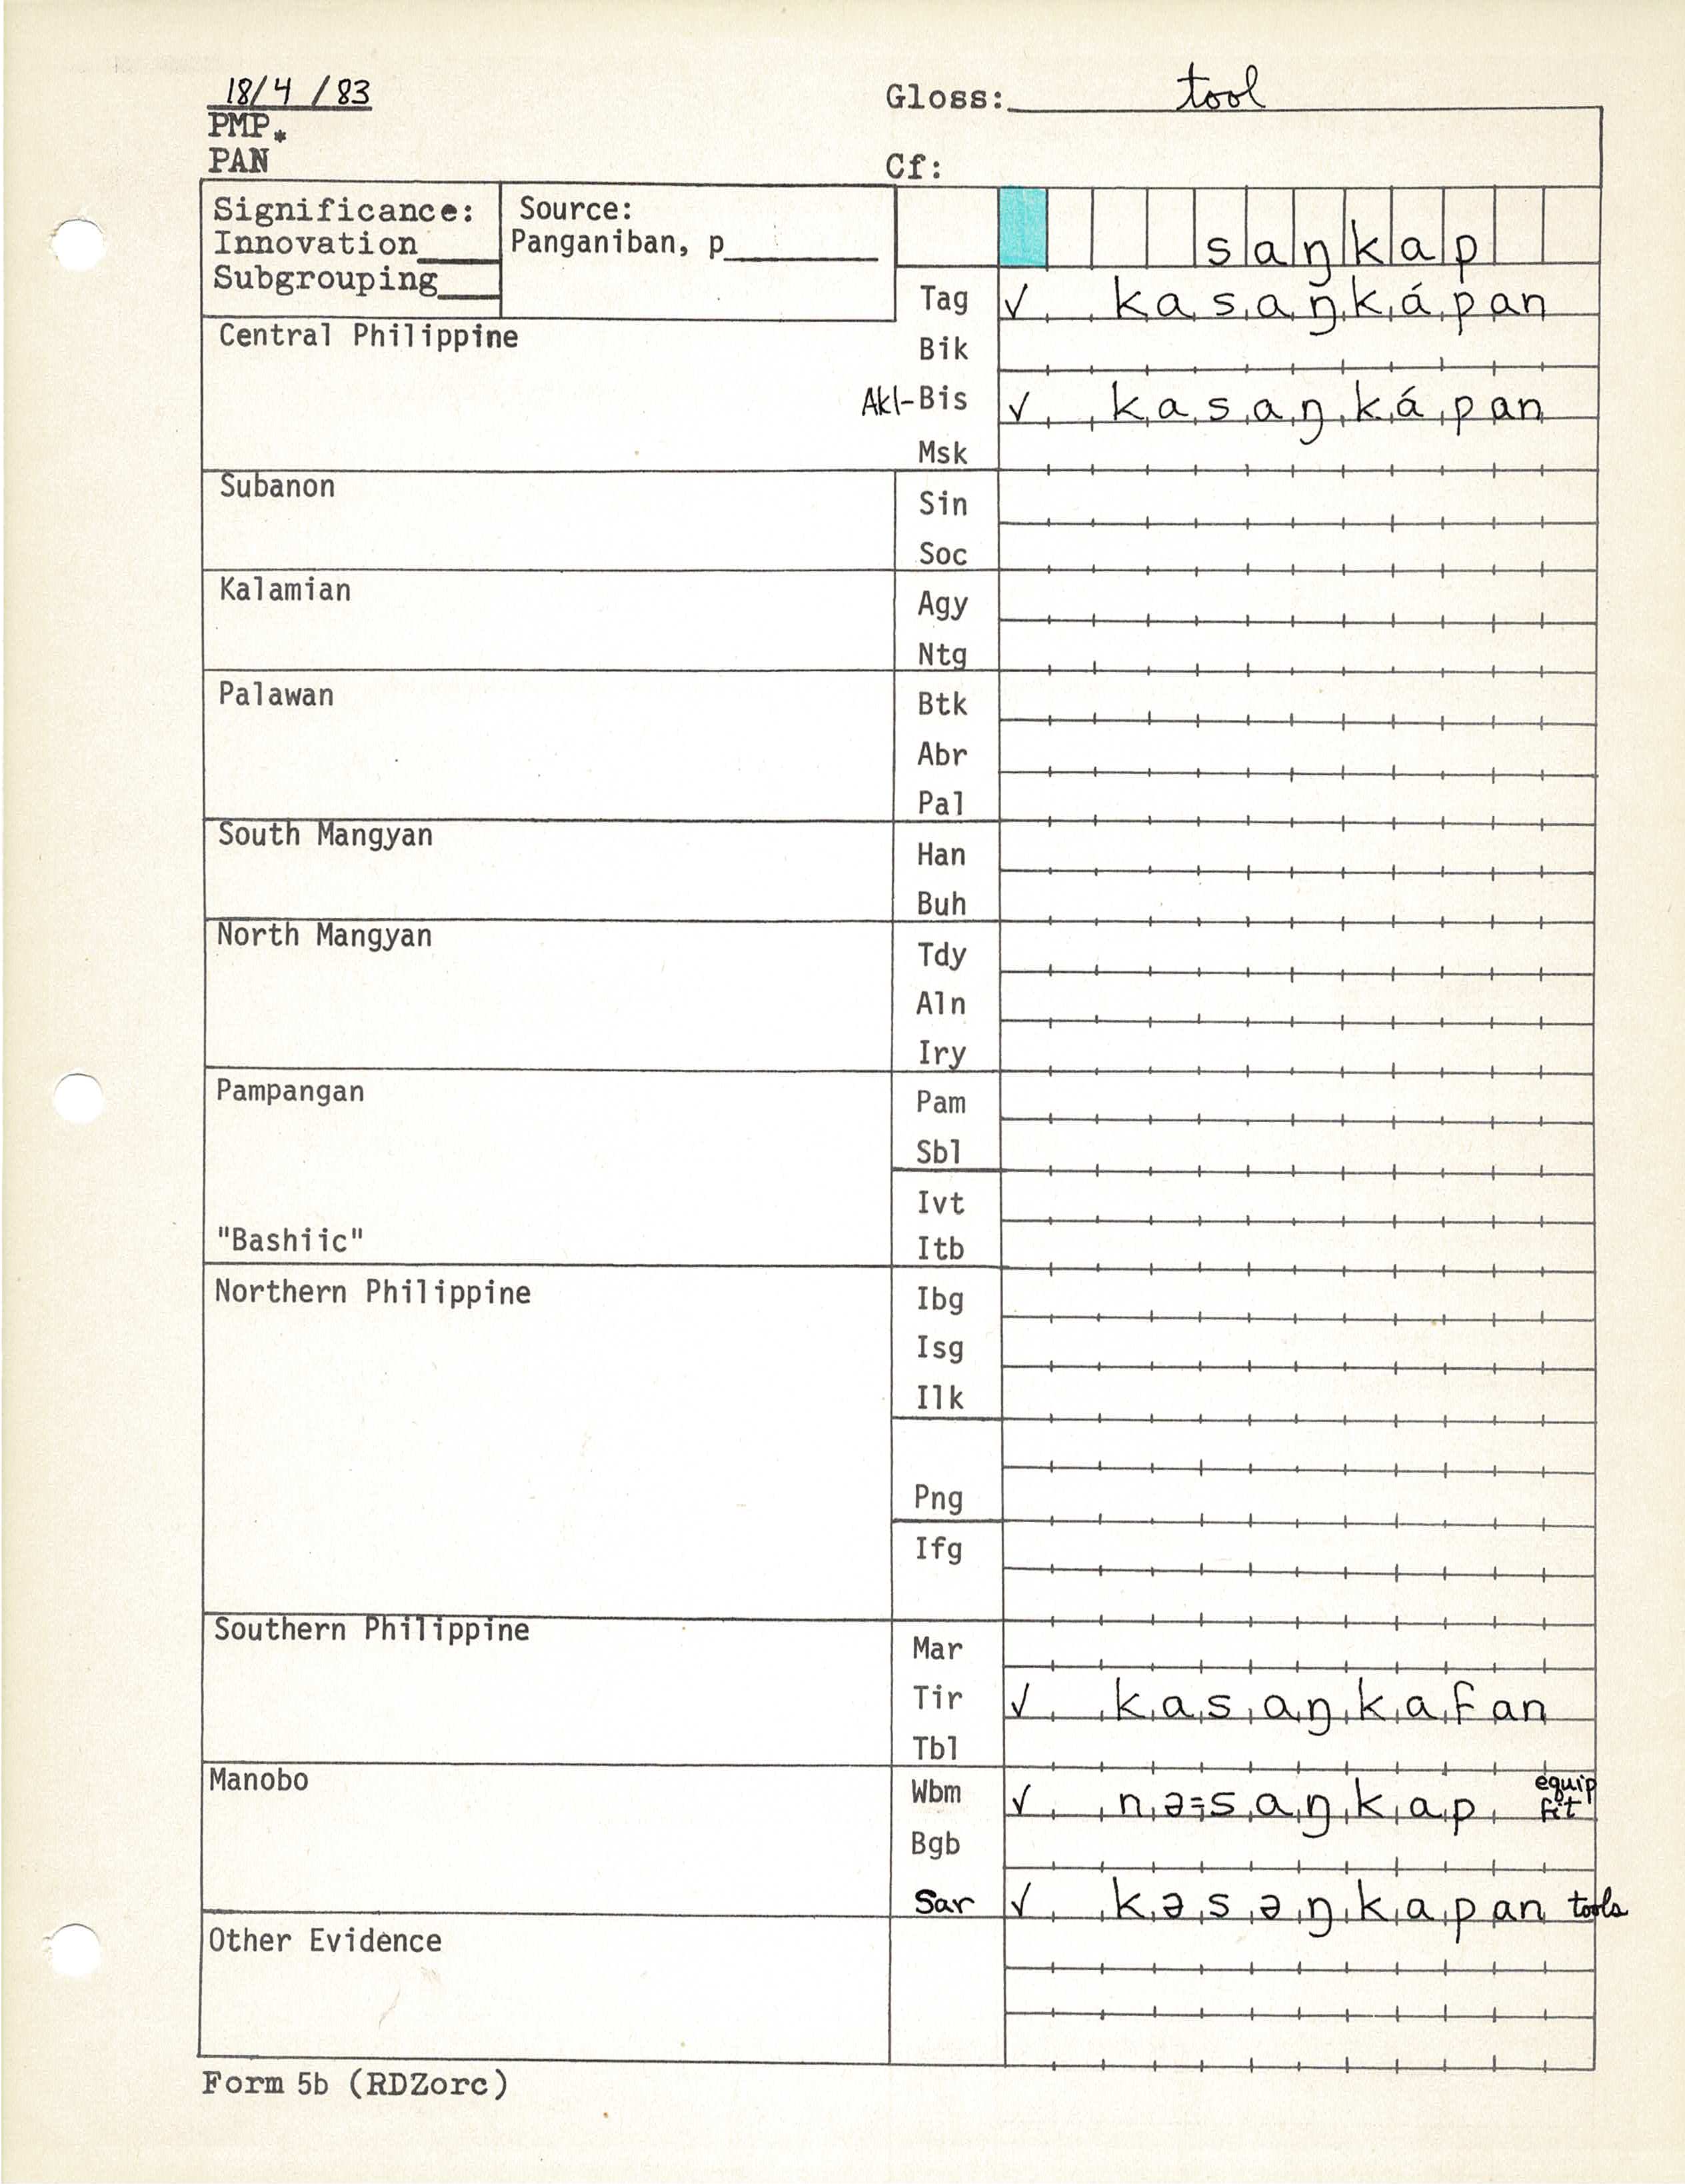 18/4 /83
Gloss: tool
PMP*
PAN
Cf:
Significance:
Innovation____
Subgrouping____
Source:
Panganiban, p________
saŋkap
Tag ✓ kasaŋkápan
Central Philippine
Bik
Akl-Bis ✓ kasaŋkápan
Msk
Subanon
Sin
Soc
Kalamian
Agy
Ntg
Palawan
Btk
Abr
Pal
South Mangyan
Han
Buh
North Mangyan
Tdy
Aln
Iry
Pampangan
Pam
Sbl
Ivt
"Bashiic"
Itb
Northern Philippine
Ibg
Isg
Ilk
Png
Ifg
Southern Philippine
Mar
Tir ✓ kasaŋkafan
Tbl
Manobo
Wbm ✓ nə=saŋkap equip fit
Bgb
Sar ✓ kəsəŋkapan tools
Other Evidence
Form 5b (RDZorc)